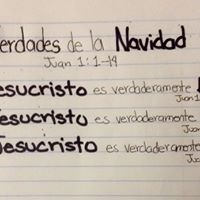 erdades de la Navidad
Juan 1:1-14
esucristo es verdaderamente
Juan 1
esucristo es verdaderamente
Jua
Jesucristo es verdaderamente
Ju